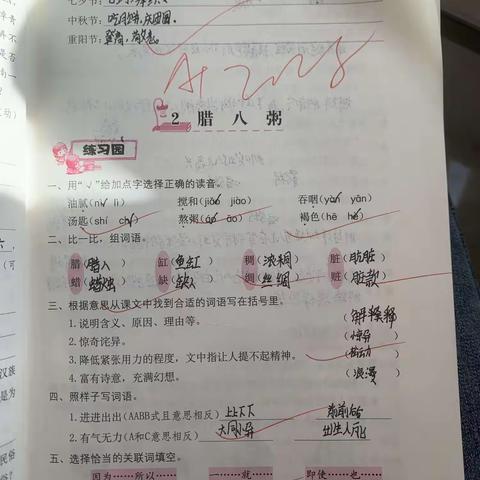 七夕节:
中秋节:吃月饼,庆团圆。
重阳节:登高,
A+ 2028
2 腊八粥
练习园
一、用“√”给加点字选择正确的读音。
油腻(nì lì) 搅和(jiǎo jiào) 吞咽(yàn yān)
汤匙(shí chí) 熬粥(áo āo) 褐色(hè hé)
二、比一比,组词语。
腊(腊八) 缸(鱼缸) 稠(浓稠) 脏(肮脏)
蜡(蜡烛) 缺(缺人) 绸(丝绸) 赃(
三、根据意思从课文中找到合适的词语写在括号里。
1.说明含义、原因、理由等。 (解释)
2.惊奇诧异。 (惊异)
3.降低紧张用力的程度,文中指让人提不起精神。
4.富有诗意,充满幻想。 (浪漫)
四、照样子写词语。
1.进进出出(AABB式且意思相反) 上上下下 前前后后
2.有气无力(A和C意思相反) 大同小异 出生入死
五、选择恰当的关联词填空。
因为……所以…… 一……就…… 即使……也……